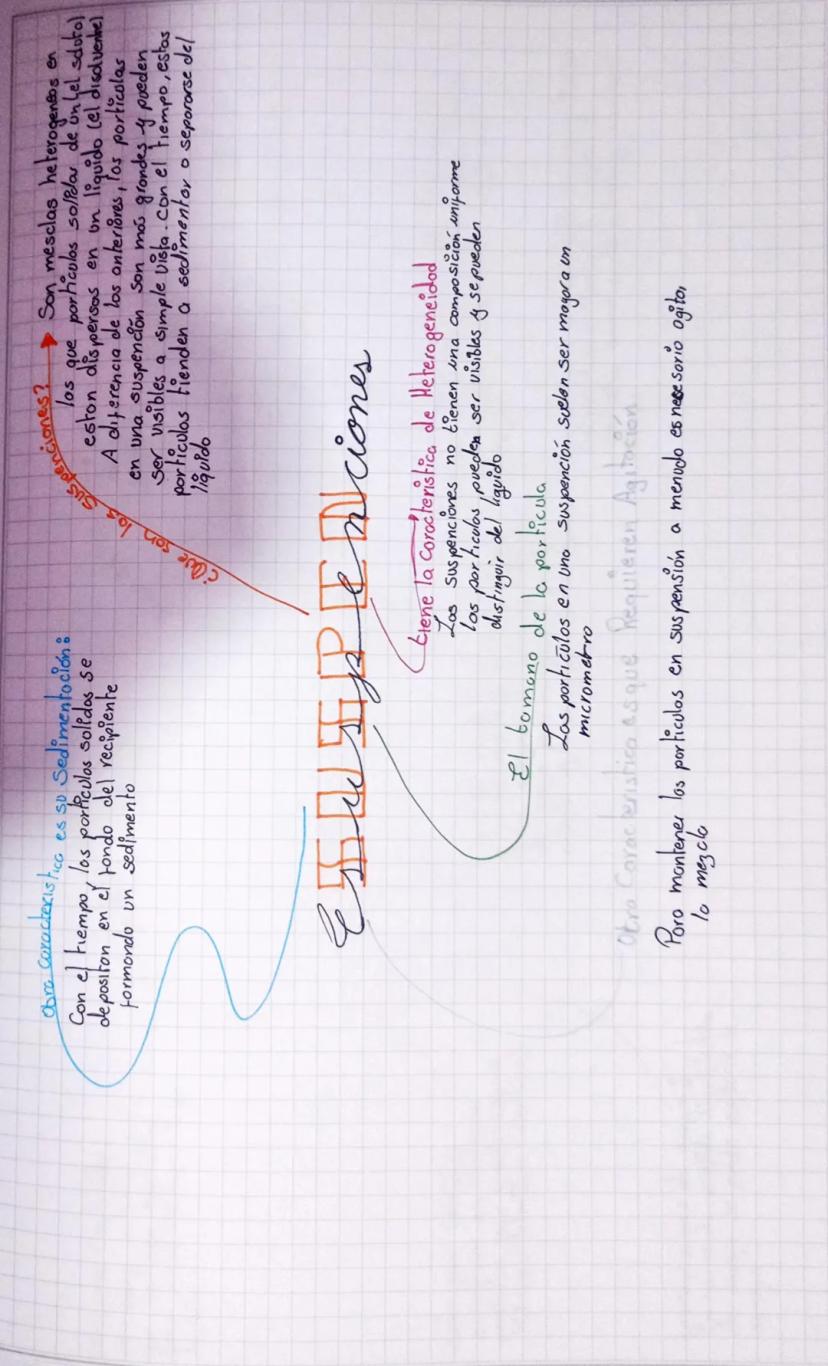 ¿Que son las suspenciones?
Son mesclas heterogeneas en
los que particulas solidas de un (el soluto)
estan dispersas en un liquido (el disolvente)
A diferencia de las anteriores, las particulas
en una suspención son más grandes y pueden
ser visibles a simple vista. Con el tiempo, estas
particulas tienden a sedimentar o separarse del
liquido
Otra caracteristica es su Sedimentación:
Con el tiempo, las particulas solidas se
depositan en el fondo del recipiente
formando un sedimento
SUSPEN
Esuspenciones
tiene la Caracteristica de Heterogeneidad
Las suspenciones no tienen una composición uniforme
las particulas pueden ser visibles y se pueden
distinguir del liquido
El tamano de la particula
Las particulas en una suspención suelen ser mayor a un
micrometro
Otra Caracteristica es que Requieren Agitación
Para mantener las particulas en suspensión a menudo es necesario agitar
la mezcla